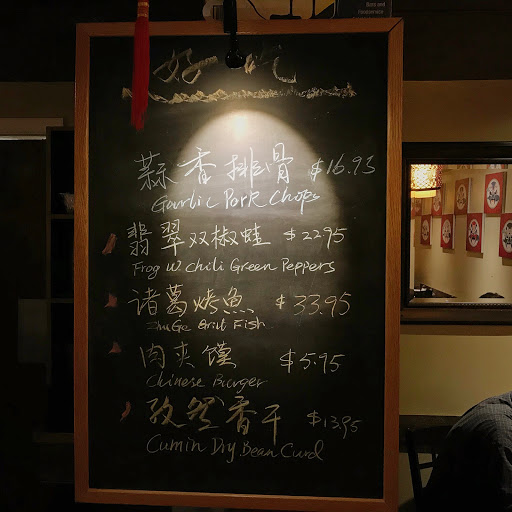 好吃
蒜香排骨 $16.95
Garlic Pork Chops
翡翠双椒蛙 $22.95
Frog w chili Green Peppers
诸葛烤魚 $33.95
ZhuGe Grill Fish
肉夹馍 $5.95
Chinese Burger
孜然香干 $13.95
Cumin Dry Bean Curd